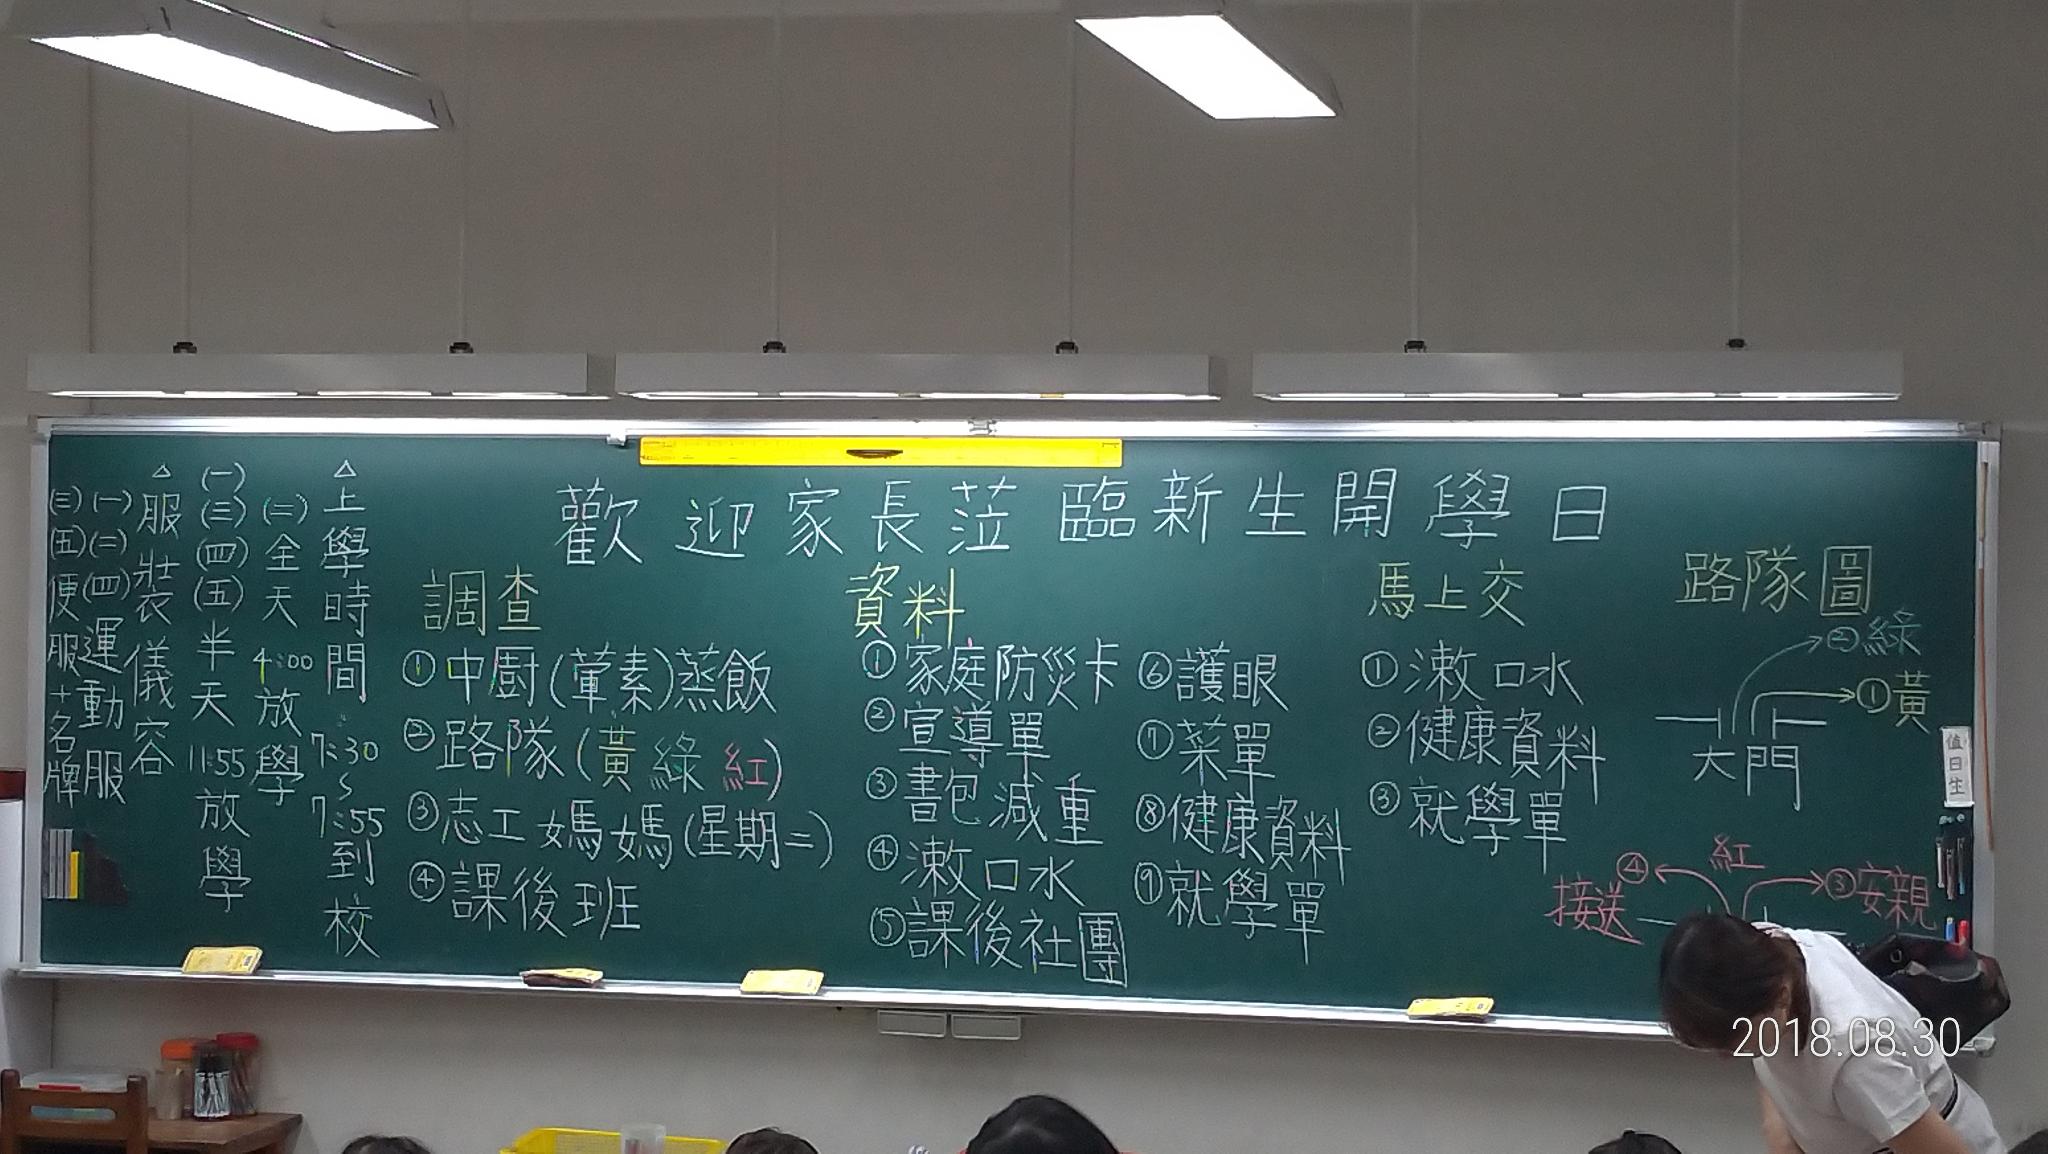 歡迎家長蒞臨新生開學日
△上學時間:7:30~7:55到校
(二)全天4:00放學
(一)(三)(四)(五)半天11:55放學
△服裝儀容
(一)(二)(四)運動服
(三)(五)便服+名牌
調查
①中廚(葷素)蒸飯
②路隊(黃綠紅)
③志工媽媽(星期二)
④課後班
資料
①家庭防災卡
②宣導單
③書包減重
④漱口水
⑤課後社團
⑥護眼
⑦菜單
⑧健康資料
⑨就學單
馬上交
①漱口水
②健康資料
③就學單
路隊圖
②綠
①黃
大門
紅
④接送
③安親
值日生
2018.08.30